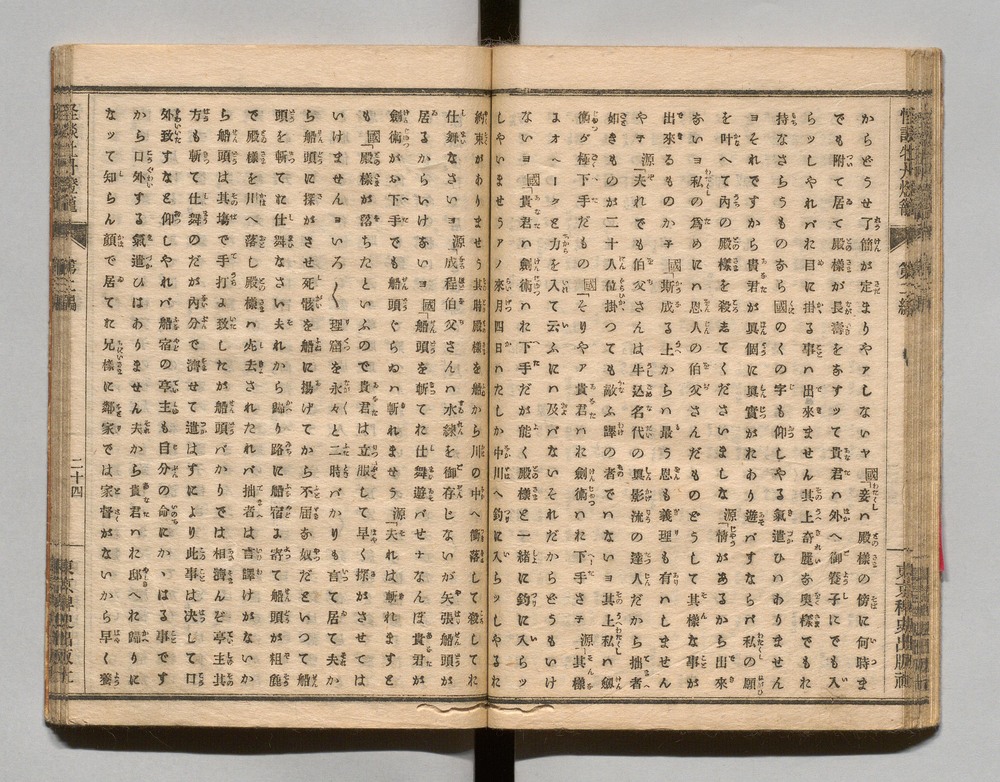 怪談牡丹燈籠 第二編 東京稗史出版社
からどうせ了簡が定まりやアしないヨ 國「妾ハ殿様の傍に何時ま
でも附て居て殿様が長壽をすッて貴君ハ外へ御養子にでも入
らッしやれバお目に掛る事ハ出來ません其上奇麗な奥様でもお
持なさらうものなら國のくの字も仰しやる氣遣ひハありません
ヨそれですから貴君が眞個に眞實がお有り遊バすならバ私の願
を叶へて内の殿様を殺ましてくださいましな 源「情があるから出來
ないヨ私の為めにハ恩人の伯父さんだものどうして其様な事が
出來るものかネ 國「斯成る上からハ最う恩も義理も有ハしませんわ
やネ 源「夫れでも伯父さんは牛込名代の眞影流の達人だから拙者
如きものが二十人位掛つても敵ふ譯の者でないヨ其上私ハ劔
術が極下手だもの 國「そりやア貴君ハお劔術ハお下手さネ 源「其様
まオヘーッと力を入れて云ふにハ及バないそれだからどうもいけ
ないヨ 國「貴君ハ劔術ハお下手だが能く殿様と一緒に釣に入らッ
しやいませうアノ來月四日ハたしか中川へ釣に入らッしやるお
約束がありませう其時殿様を舩から川の中へ衝落して殺してお
仕舞なさいヨ 源「成程伯父さんハ水練を御存じないが矢張船頭が
居るからいけないヨ 國「船頭を斬てお仕舞遊バせナなんぼ貴君が
劔術がお下手でも船頭ぐらゐハ斬れませう 源「夫れは斬れますと
も 國「殿様が落ちたといふので貴君は立服して早く探がさせてハ
いけませんヨいろ〳〵理窟を永々と二時バかりも言て居て夫か
ら船頭に探がさせ死骸を船に揚げてから不届な奴だといつて船
頭を斬てお仕舞なさい夫れから歸り路に船宿に寄て船頭が粗麁
で殿様を川へ落し殿様ハ死去されたれバ拙者は言譯がないか
ら船頭は其塲で手打ま致したが船頭バかりでは相濟んぞ亭主其
方も斬て仕舞のだが内分で濟せて遣はすにより此事は決して口
外致すなと仰しやれバ船宿の亭主も自分の命にかゝはる事です
から口外する氣遣ひはありません夫から貴君ハお邸へお歸りに
なッて知らん顔で居てお兄様に鄰家では家督がないから早く養
怪談牡丹燈籠 第二編 二十四 東京稗史出版社